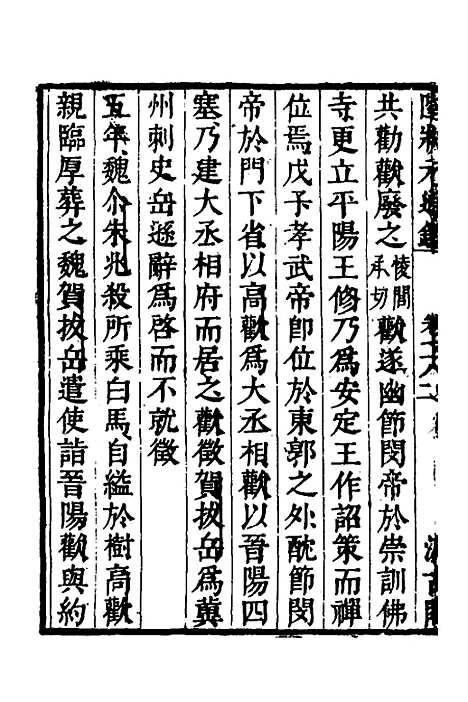 共勸歡廢之㥄閒承切歡遂幽節閔帝於崇訓佛
寺更立平陽王修乃爲安定王作詔策而禪
位焉戊子孝武帝卽位於東郭之外酖節閔
帝於門下省以高歡爲大丞相歡以晉陽四
塞乃建大丞相府而居之歡徵賀拔岳爲冀
州刺史岳遜辭爲啓而不就徵
五年魏尒朱兆殺所乘白馬自縊於樹高歡
親臨厚葬之魏賀拔岳遣使詣晉陽歡與約